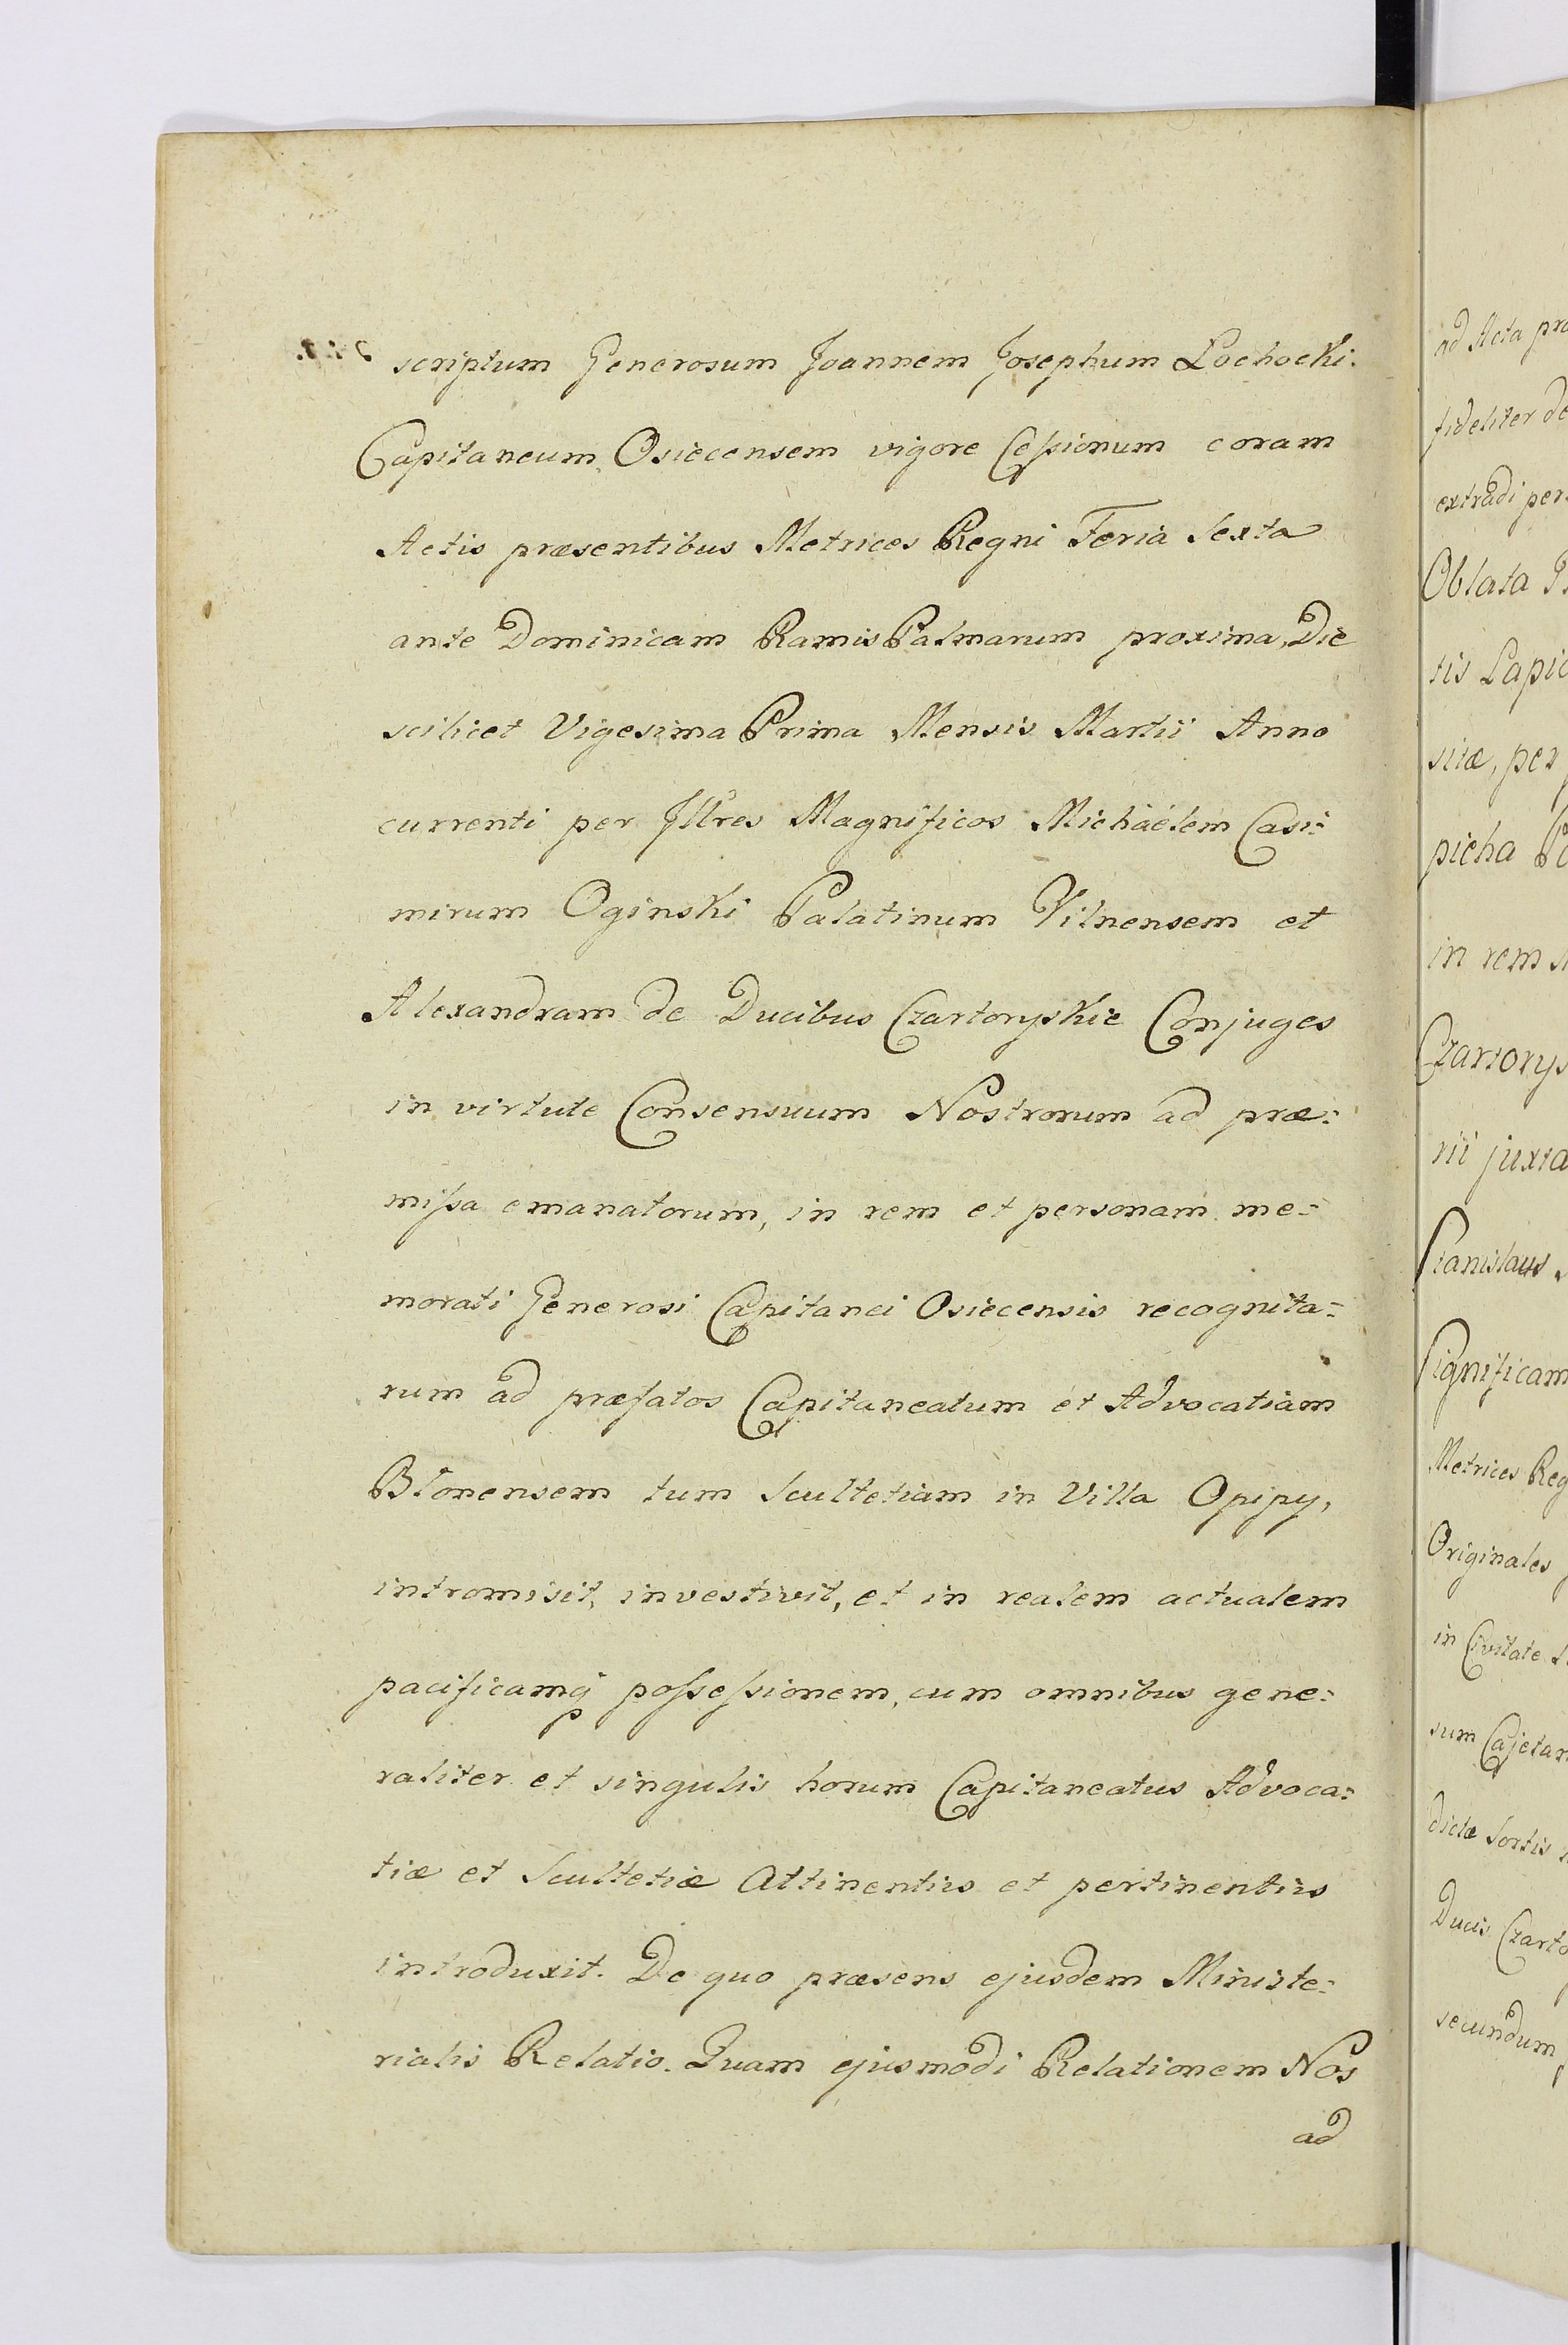 scriptum Generosum Joannem Josephum Łochocki
Capitaneum Osiecensem vigore Cessionum coram
Actis præsentibus Metrices Regni Feria Sexta
ante Dominicam Ramis Palmarum proxima, Die
scilicet Vigesima Prima Mensis Martii Anno
currenti per Illres Magnificos Michaelem Casi=
mirum Oginski Palatinum Vilnensem et
Alexandram de Ducibus Czartoryskie Conjuges
in virtute Consensuum Nostrorum ad præ=
missa emanatorum, in rem et personam me=
morati Generosi Capitanei Osiecensis recognita=
rum ad præfatos Capitaneatum et Advocatiam
Blonensem tum Scultetiam in Villa Opipy,
intromisit, investivit, et in realem actualem
pacificamq possessionem, cum omnibus gene=
raliter et singulis horum Capitaneatus Advoca=
tiæ et Scultetiæ Attinentiis et pertinentiis
introduxit. De quo præsens ejusdem Ministe=
rialis Relatio. Quam ejusmodi Relationem Nos
ad
ad Acta
fideliter
extradi
Oblata
tis
sitæ, per
picha
in rem
rii juxta
Stanislaus
Significam
Metrices Reg
Originales
in Civitate
sum Cajetan
dictæ Sortis
Ducis Czarto
secundum